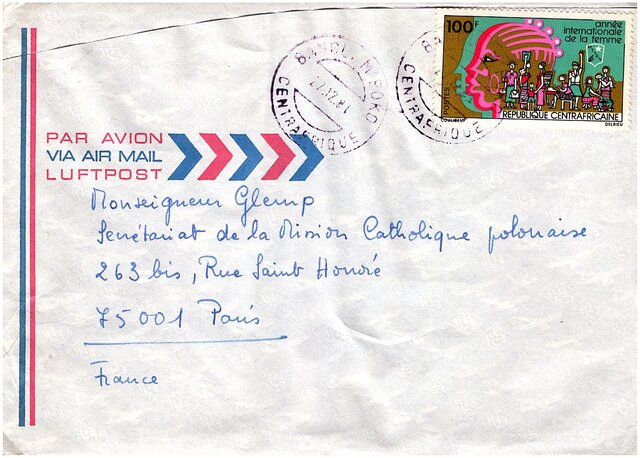 100F
année
internationale
de la femme
POSTES
RÉPUBLIQUE CENTRAFRICAINE
COULIBEUF
DELRIEU
BANGUI M'POKO
27.12.81
CENTRAFRIQUE
CENTRAFRIQUE
PAR AVION
VIA AIR MAIL
LUFTPOST
Monseigneur Glemp
Secrétariat de la Mission Catholique polonaise
263 bis, Rue Saint Honoré
75001 Paris
France